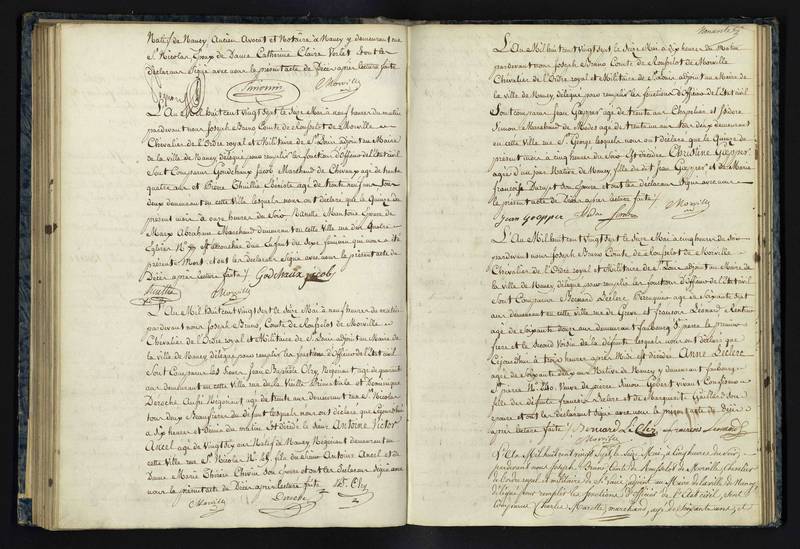 Natif de Nancy Ancien Avocat et Notaire à Nancy y demeurant rue
St Nicolas Epoux de Dame Catherine Claire Volet et ont les
déclarans Signé avec nous le présent acte de Décès après lecture faite
Simonin Morville
L'An Mil huit cent vingt sept le Seize Mai à neuf heures du matin
pardevant nous Joseph Bruno Comte de Rouffelot de Morville
Chevalier de l'Ordre royal et Militaire de St Louis adjoint au Maire
de la ville de Nancy délégué pour remplir les fonctions d'Officier de l'Etat civil
Sont Comparus Godchaux Jacob Marchand de Chevaux agé de trente
quatre ans et Pierre agé de trente neuf ans tous
deux demeurant en cette Ville lesquels nous ont déclaré que le Quinze du
présent mois à onze heures du Soir Nanette Epouse de
Marx Abraham Marchand demeurant en cette Ville rue des Quatre
Eglises est accouchée d'un Enfant du Sexe féminin qui nous a été
présenté Mort et ont les déclarans Signé avec nous le présent acte de
Décès après lecture faite Godchaux Jacob
Morville
L'An Mil huit cent vingt sept le Seize Mai à neuf heures du matin
pardevant nous Joseph Bruno, Comte de Rouffelot de Morville
Chevalier de l'Ordre royal et Militaire de St Louis adjoint au Maire de
la Ville de Nancy délégué pour remplir les fonctions d'Officier de l'Etat civil
Sont Comparus les Sieurs Jean Baptiste Olry Négociant agé de quarante
ans demeurant en cette Ville rue de la Vieille Primatiale et Dominique
Deroche Négociant agé de trente ans demeurant rue St Nicolas
tous deux Beaufrères du défunt lesquels nous ont déclaré que Cejourd'hui
à Six heures et demie du matin Est décédé le Sieur Antoine Victor
Ancel agé de Vingt ans Natif de Nancy Négociant demeurant en
cette Ville rue St Nicolas No fils du Sieur Antoine Ancel et de
Dame Marie Thérèse son Epouse et ont les déclarans Signé avec
nous le présent acte de Décès après lecture faite Bte Olry
Morville Deroche
L'An Mil huit cent vingt sept le Seize Mai à dix heures du Matin
pardevant nous Joseph Bruno Comte de Rouffelot de Morville
Chevalier de l'Ordre royal et Militaire de St Louis adjoint au Maire de
la ville de Nancy délégué pour remplir les fonctions d'Officier de l'Etat civil
Sont comparus Jean Gaspper agé de trente ans Chapelier et Isidore
Simon Marchand de Modes agé de trente un ans tous deux demeurant
en cette Ville rue St George lesquels nous ont déclaré que le Quinze du
présent mois à cinq heures du Soir Est décédée Christine Gaspper
agée d'un jour Native de Nancy, fille du dit Jean Gaspper et de Marie
Françoise son Epouse et ont les déclarans Signé avec nous
le présent acte de Décès après lecture faite Morville
Jean Gospper Simon
L'An Mil huit cent vingt Sept le Seize Mai à cinq heures du Soir
pardevant nous Joseph Bruno Comte de Rouffelot de Morville
Chevalier de l'Ordre royal et Militaire de St Louis adjoint au Maire de
la Ville de Nancy délégué pour remplir les fonctions d'Officier de l'Etat civil
Sont Comparus Bernard Leclere Perruquier agé de Soixante Sept
ans demeurant en cette Ville rue de Greve et François Léonard Rentier
agé de Soixante douze ans demeurant faubourg St pierre le premier
frere et le Second Voisin de la défunte lesquels nous ont déclaré que
Cejourd'hui à trois heures après Midi est décédée Anne Leclere
agée de Soixante deux ans Native de Nancy y demeurant faubourg
St pierre No 280. Veuve de pierre Simon Gobert vivant
fille des défunts François Leclere et de Marguerite son
Epouse et ont les déclarans Signé avec nous le présent acte de Décès
après lecture faite Bernard Le Cler Francois Leonard
Morville
L'An Mil huit cent vingt Sept, le Seize Mai, à Cinq heures du Soir,
pardevant nous Joseph Bruno Comte de Rouffelot de Morville Chevalier
de l'ordre royal, et militaire de St Louis adjoint au Maire de la ville de Nancy,
délégué pour remplir les fonctions d'Officier de l'Etat civil, Sont
comparus Charles Marotte, marchand, agé de soixante ans, et